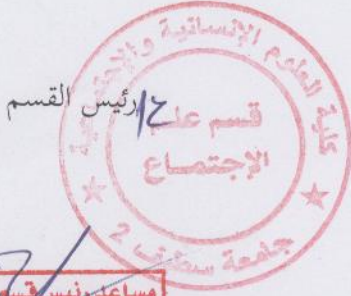 ع/رئيس القسم
كلية العلوم الإنسانية والإجتماعية
قسم علم
الإجتمـاع
جامعة سطيف 2
مساعد رئيس قسم